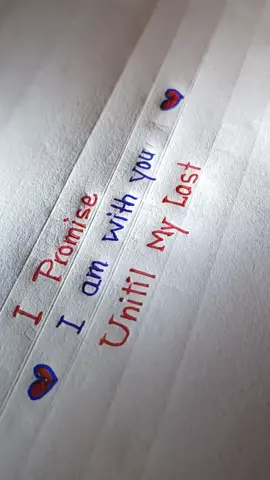 I Promise
I am with you
Unitil My Last